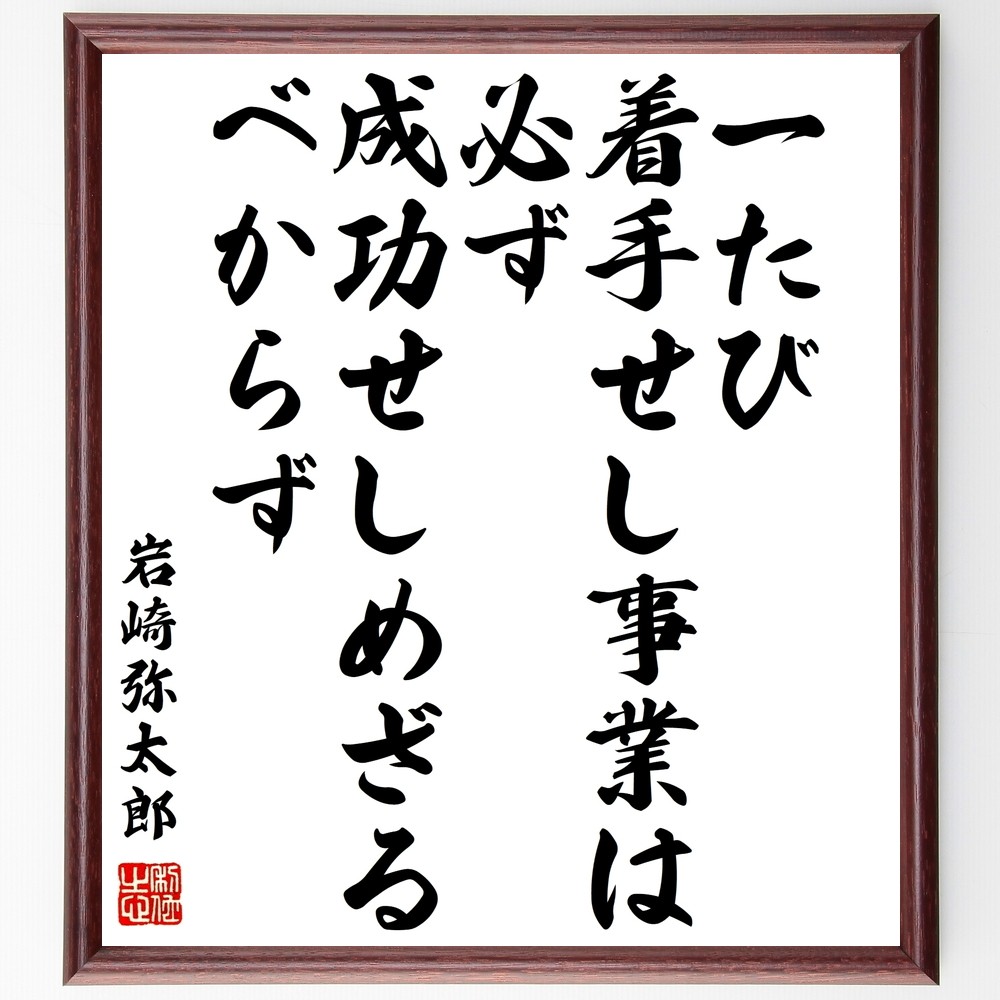 一たび
着手せし事業は
必ず
成功せしめざる
べからず
岩崎弥太郎